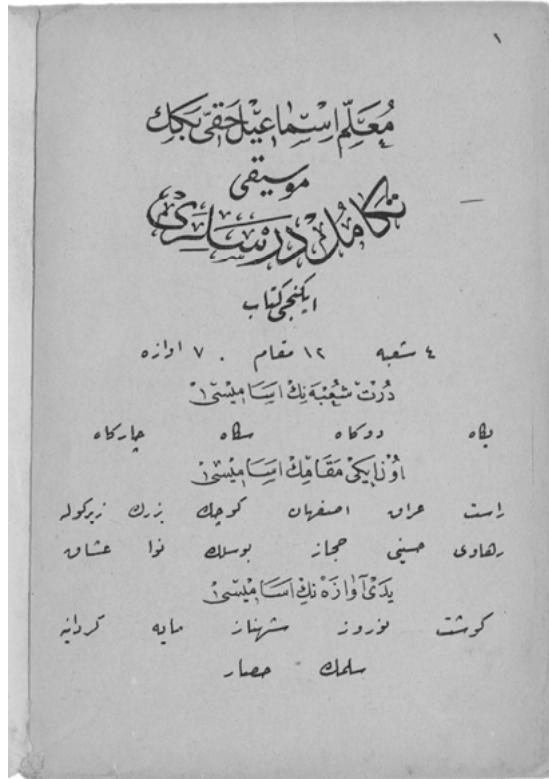 ١
مُعَلِّم اِسْمَاعِيل حَقِّى بَكِك
موسيقى
تَكَامُل دَرسْلَرِى
ايكنجى كتاب
٤ شعبه ١٢ مقام . ٧ اوازه
دُرْت شُعْبَه نِكْ اَسَامِيسِى
يكاه دوكاه سكاه چاركاه
اوُن اِيكِى مَقَامِكْ اَسَامِيسِى
راست عراق اصفهان كوچك بزرك زيركوله
رهاوى حسينى حجاز بوسلك نوا عشاق
يَدِى آوَازَه نِكْ اَسَامِيسِى
كوشت نوروز شهناز مايه كردانيه
سلمك حصار